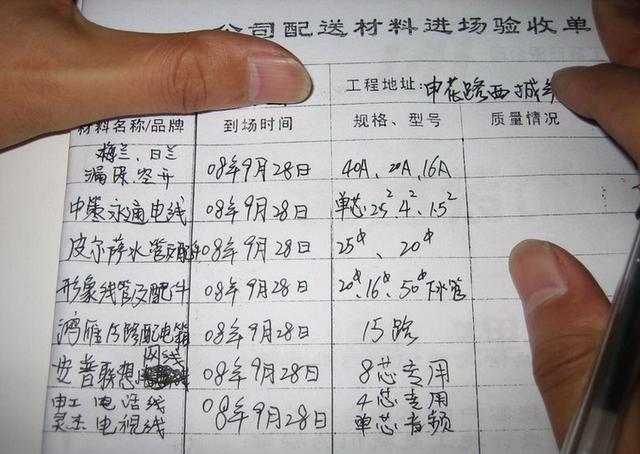 公司配送材料进场验收单
工程地址: 申花路西城
材料名称/品牌 到场时间 规格、型号 质量情况
梅兰、日兰
漏保、空开 08年9月28日 40A、20A、16A
中策永通电线 08年9月28日 单芯2.5² 4² 1.5²
皮尔萨水管及配件 08年9月28日 25Φ、20Φ
形象线管及配件 08年9月28日 20Φ、16Φ、50Φ下水管
鸿雁15路配电箱 08年9月28日 15路
网线
安普联想 08年9月28日 8芯专用
电话线 4芯专用
08年9月28日
电视线 单芯音频